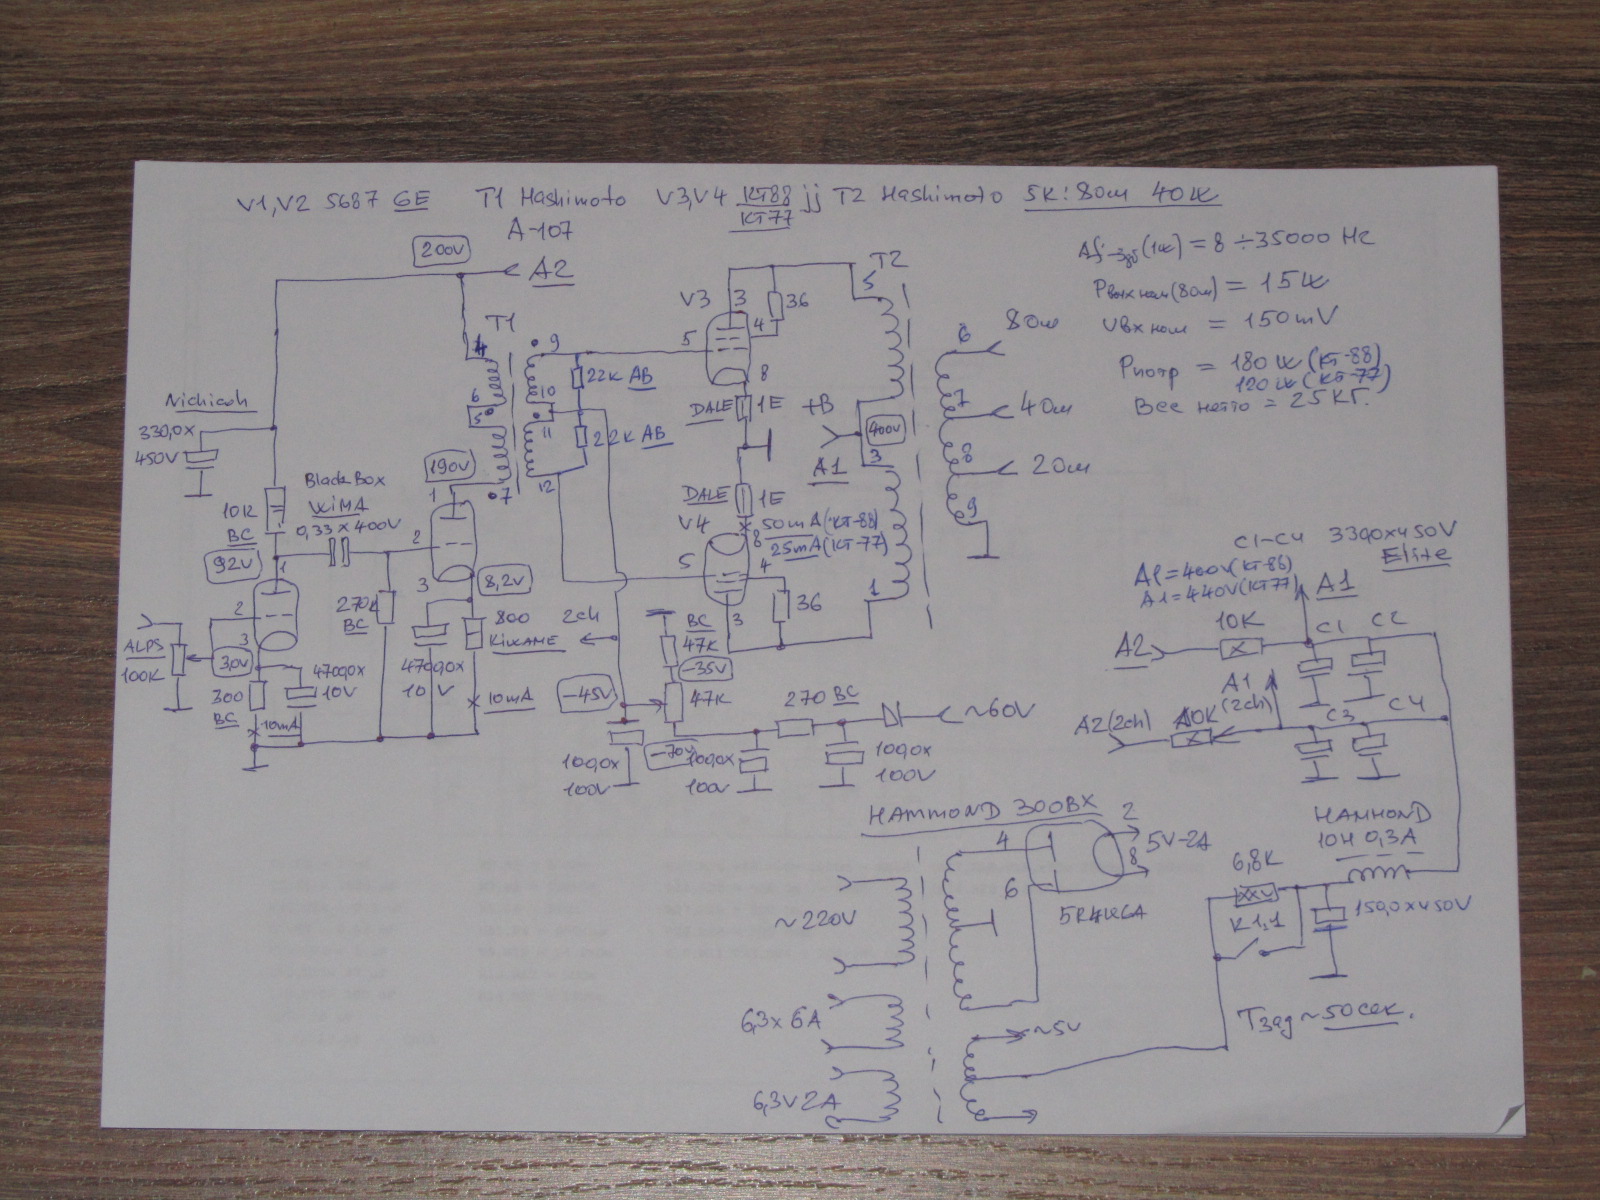 V1,V2 5687 GE T1 Hashimoto V3,V4 KT88 jj T2 Hashimoto 5K:8Ом 40W
KT77
A-107
200V
A2
Δf-3дб(1W) = 8 ÷ 35000 Hz
Pвых ном(8Ом) = 15W
Uвх ном = 150mV
Pпотр = 180W (KT-88)
120W (KT-77)
Вес нетто = 25 КГ.
T1
4
6
5
7
9
10
11
12
22K AB
22K AB
V3
3
4
5
8
36
DALE 1E
+B
A1
400V
T2
5
3
1
6
7
8
9
8Ом
4Ом
2Ом
DALE 1E
V4
50mA (KT-88)
25mA (KT-77)
5
8
4
3
36
Nichicon
330,0x
450V
10K
BC
92V
Black Box
WIMA
0,33 x 400V
190V
1
2
3
8,2V
270K
BC
ALPS
100K
1
2
3
3,0V
300
BC
10mA
470,0x
10V
470,0x
10V
800
KIWAME
10mA
2ch
BC
47K
-35V
47K
-45V
-70V
100,0x
100V
100,0x
100V
270 BC
100,0x
100V
~60V
C1-C4 330,0x450V
Elite
A1=400V(KT-88)
A1=440V(KT77)
A1
A2
10K
C1
C2
A1
(2ch)
A2(2ch)
10K
C3
C4
HAMMOND
10H 0,3A
6,8K
K1.1
150,0x450V
Tзад ~ 50сек.
HAMMOND 300BX
4
6
2
8
5V-2A
5R4WGA
~220V
6,3 x 6A
6,3V 2A
~5V